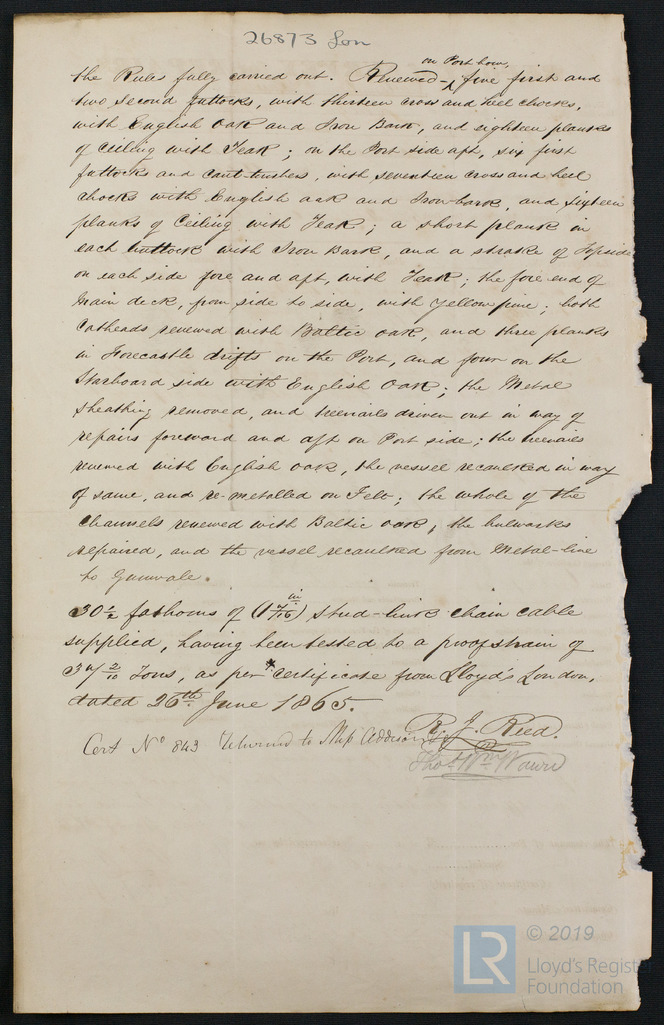 26873 Lon
on Port bow,
the Rules fully carried out. Renewed - five first and
two second futtocks, with thirteen cross and heel chocks,
with English Oak and Iron Bark, and eighteen planks
of Ceiling with Teak; on the Port side aft, six first
futtocks and cant-timbers, with seventeen cross and heel
chocks with English oak and Iron-bark, and sixteen
planks of Ceiling with Teak; a short plank in
each buttock with Iron Bark, and a strake of Topside
on each side fore and aft, with Teak; the fore end of
Main deck, from side to side, with yellow pine; both
Catheads renewed with Baltic oak, and three planks
in Forecastle drifts on the Port, and four on the
Starboard side with English Oak; the Metal
Sheathing removed, and treenails driven out in way of
repairs foreward and aft on Port side; the treenails
renewed with English oak, the vessel recaulked in way
of same, and re-metalled on Felt; the whole of the
Channels renewed with Baltic oak, the bulwarks
repaired, and the vessel recaulked from Metal-line
to Gunwale.
30 1/2 fathoms of (1 7/16 in) stud-link chain cable
supplied, having been tested to a proof strain of
37 2/10 Tons, as per Certificate from Lloyd's London,
dated 26th June 1865.
R. J. Reed.
Cert No 843 Returned to Mr Addison
Thos Wm Wawn
LR © 2019
Lloyd's Register
Foundation